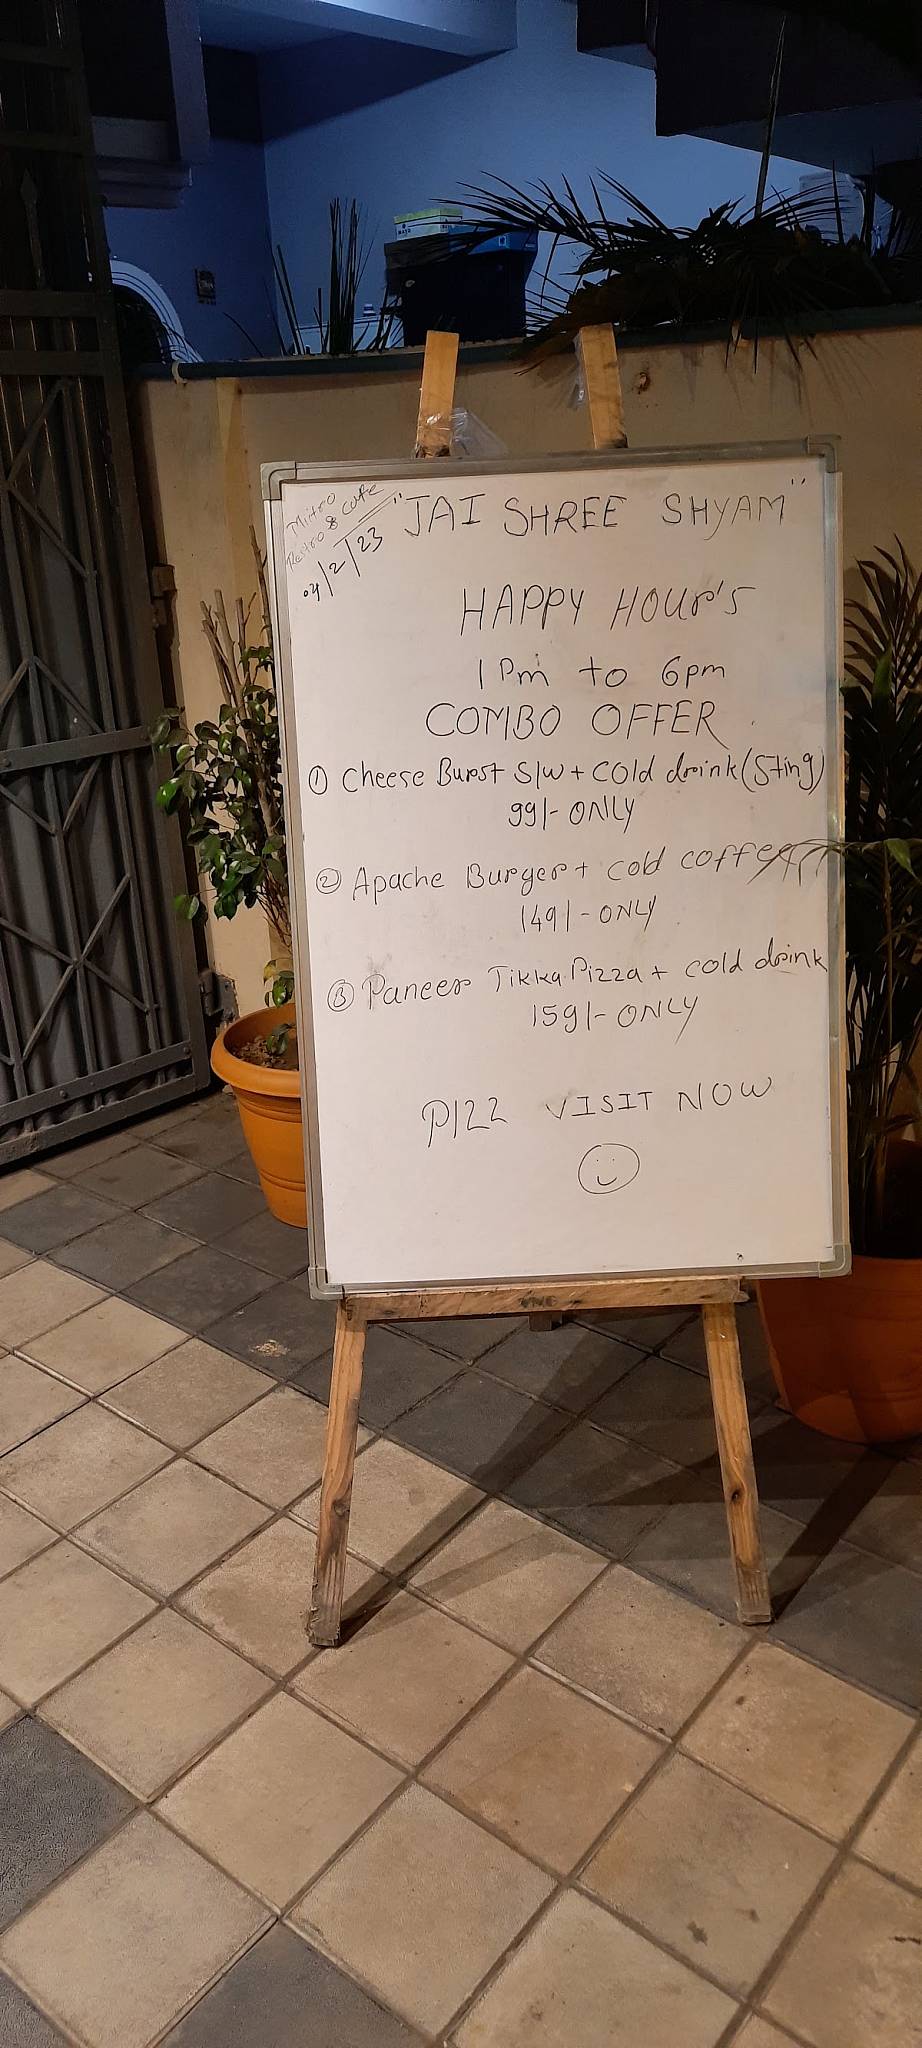 Mitro
Restro & cafe
04/2/23
"JAI SHREE SHYAM"
HAPPY HOUR'S
1 Pm to 6pm
COMBO OFFER
① Cheese Burst S/W + cold drink (Sting)
99/- ONLY
② Apache Burger + cold coffee
149/- ONLY
③ Paneer Tikka Pizza + cold drink
159/- ONLY
PlZZ VISIT NOW